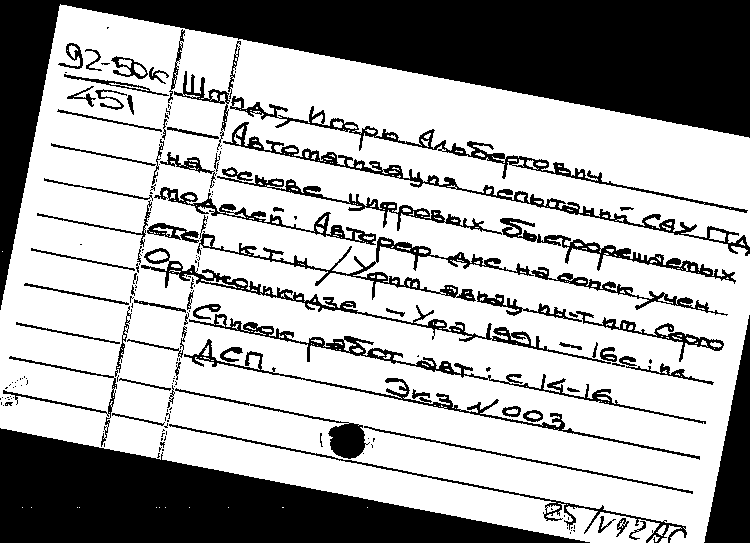 92-50к
451
Шмидт, Игорь Альбертович.
Автоматизация испытаний САУ ГТД
на основе цифровых быстрорешаемых
моделей: Автореф. дис. на соиск. учен.
степ. к.т.н. / Уфим. авиац. ин-т им. Серго
Орджоникидзе. - Уфа, 1991. - 16с.: ил.
Список работ авт.: с. 14-16.
ДСП. Экз. N 003.
25/IV92